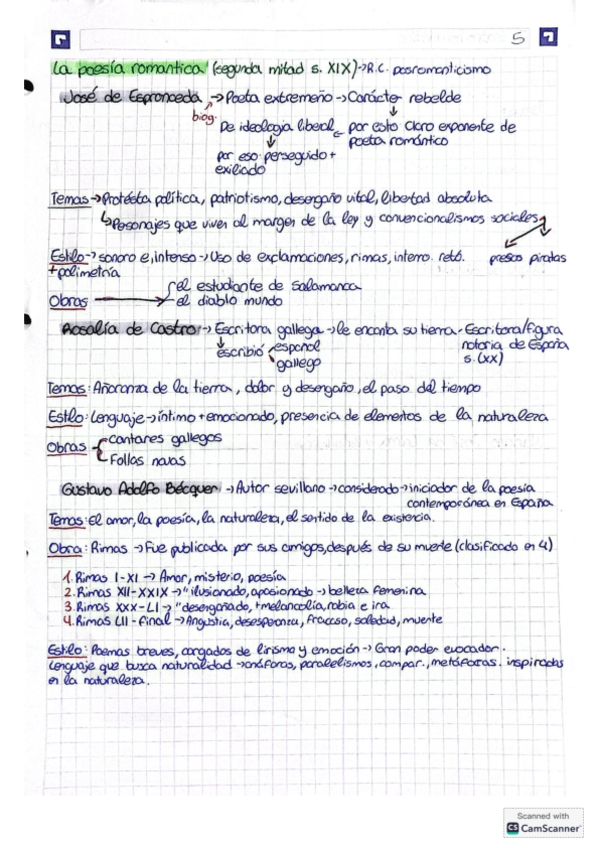 5
La poesía romantica (segunda mitad s. XIX) → R.C. posromanticismo
José de Espronceda → Poeta extremeño → Carácter rebelde
biog.
De ideologia liberal ← por esto claro exponente de
poeta romántico
por eso perseguido +
exiliado
Temas → Protesta política, patriotismo, desengaño vital, libertad absoluta
↳ Personajes que viven al margen de la ley y convencionalismos sociales
Estilo → sonoro e, intenso → Uso de exclamaciones, rimas, interro. retó. presos piratas
+ polimetría
Obras → el estudiante de Salamanca
el diablo mundo
Rosalía de Castro → Escritora gallega → le encanta su tierra - Escritora/figura
notoria de España
s. (XX)
↓ escribió español
gallego
Temas: Añoranza de la tierra, dolor y desengaño, el paso del tiempo
Estilo: Lenguaje → íntimo + emocionado, presencia de elementos de la naturaleza
Obras { Cantares gallegos
Follas novas
Gustavo Adolfo Bécquer → Autor sevillano → considerado → iniciador de la poesia
contemporánea en España
Temas: El amor, la poesía, la naturaleza, el sentido de la existencia.
Obra: Rimas → Fue publicada por sus amigos, después de su muerte (clasificado en 4)
1. Rimas I-XI → Amor, misterio, poesía
2. Rimas XII-XXIX → " ilusionado, apasionado → belleza femenina
3. Rimas XXX-LI → " desengañado, + melancolía, rabia e ira
4. Rimas LII - final → Angustia, desesperanza, fracaso, soledad, muerte
Estilo: Poemas breves, cargados de lirismo y emoción → Gran poder evocador.
Lenguaje que busca naturalidad → anáforas, paralelismos, compar., metáforas. inspiradas
en la naturaleza.
Scanned with
CS CamScanner